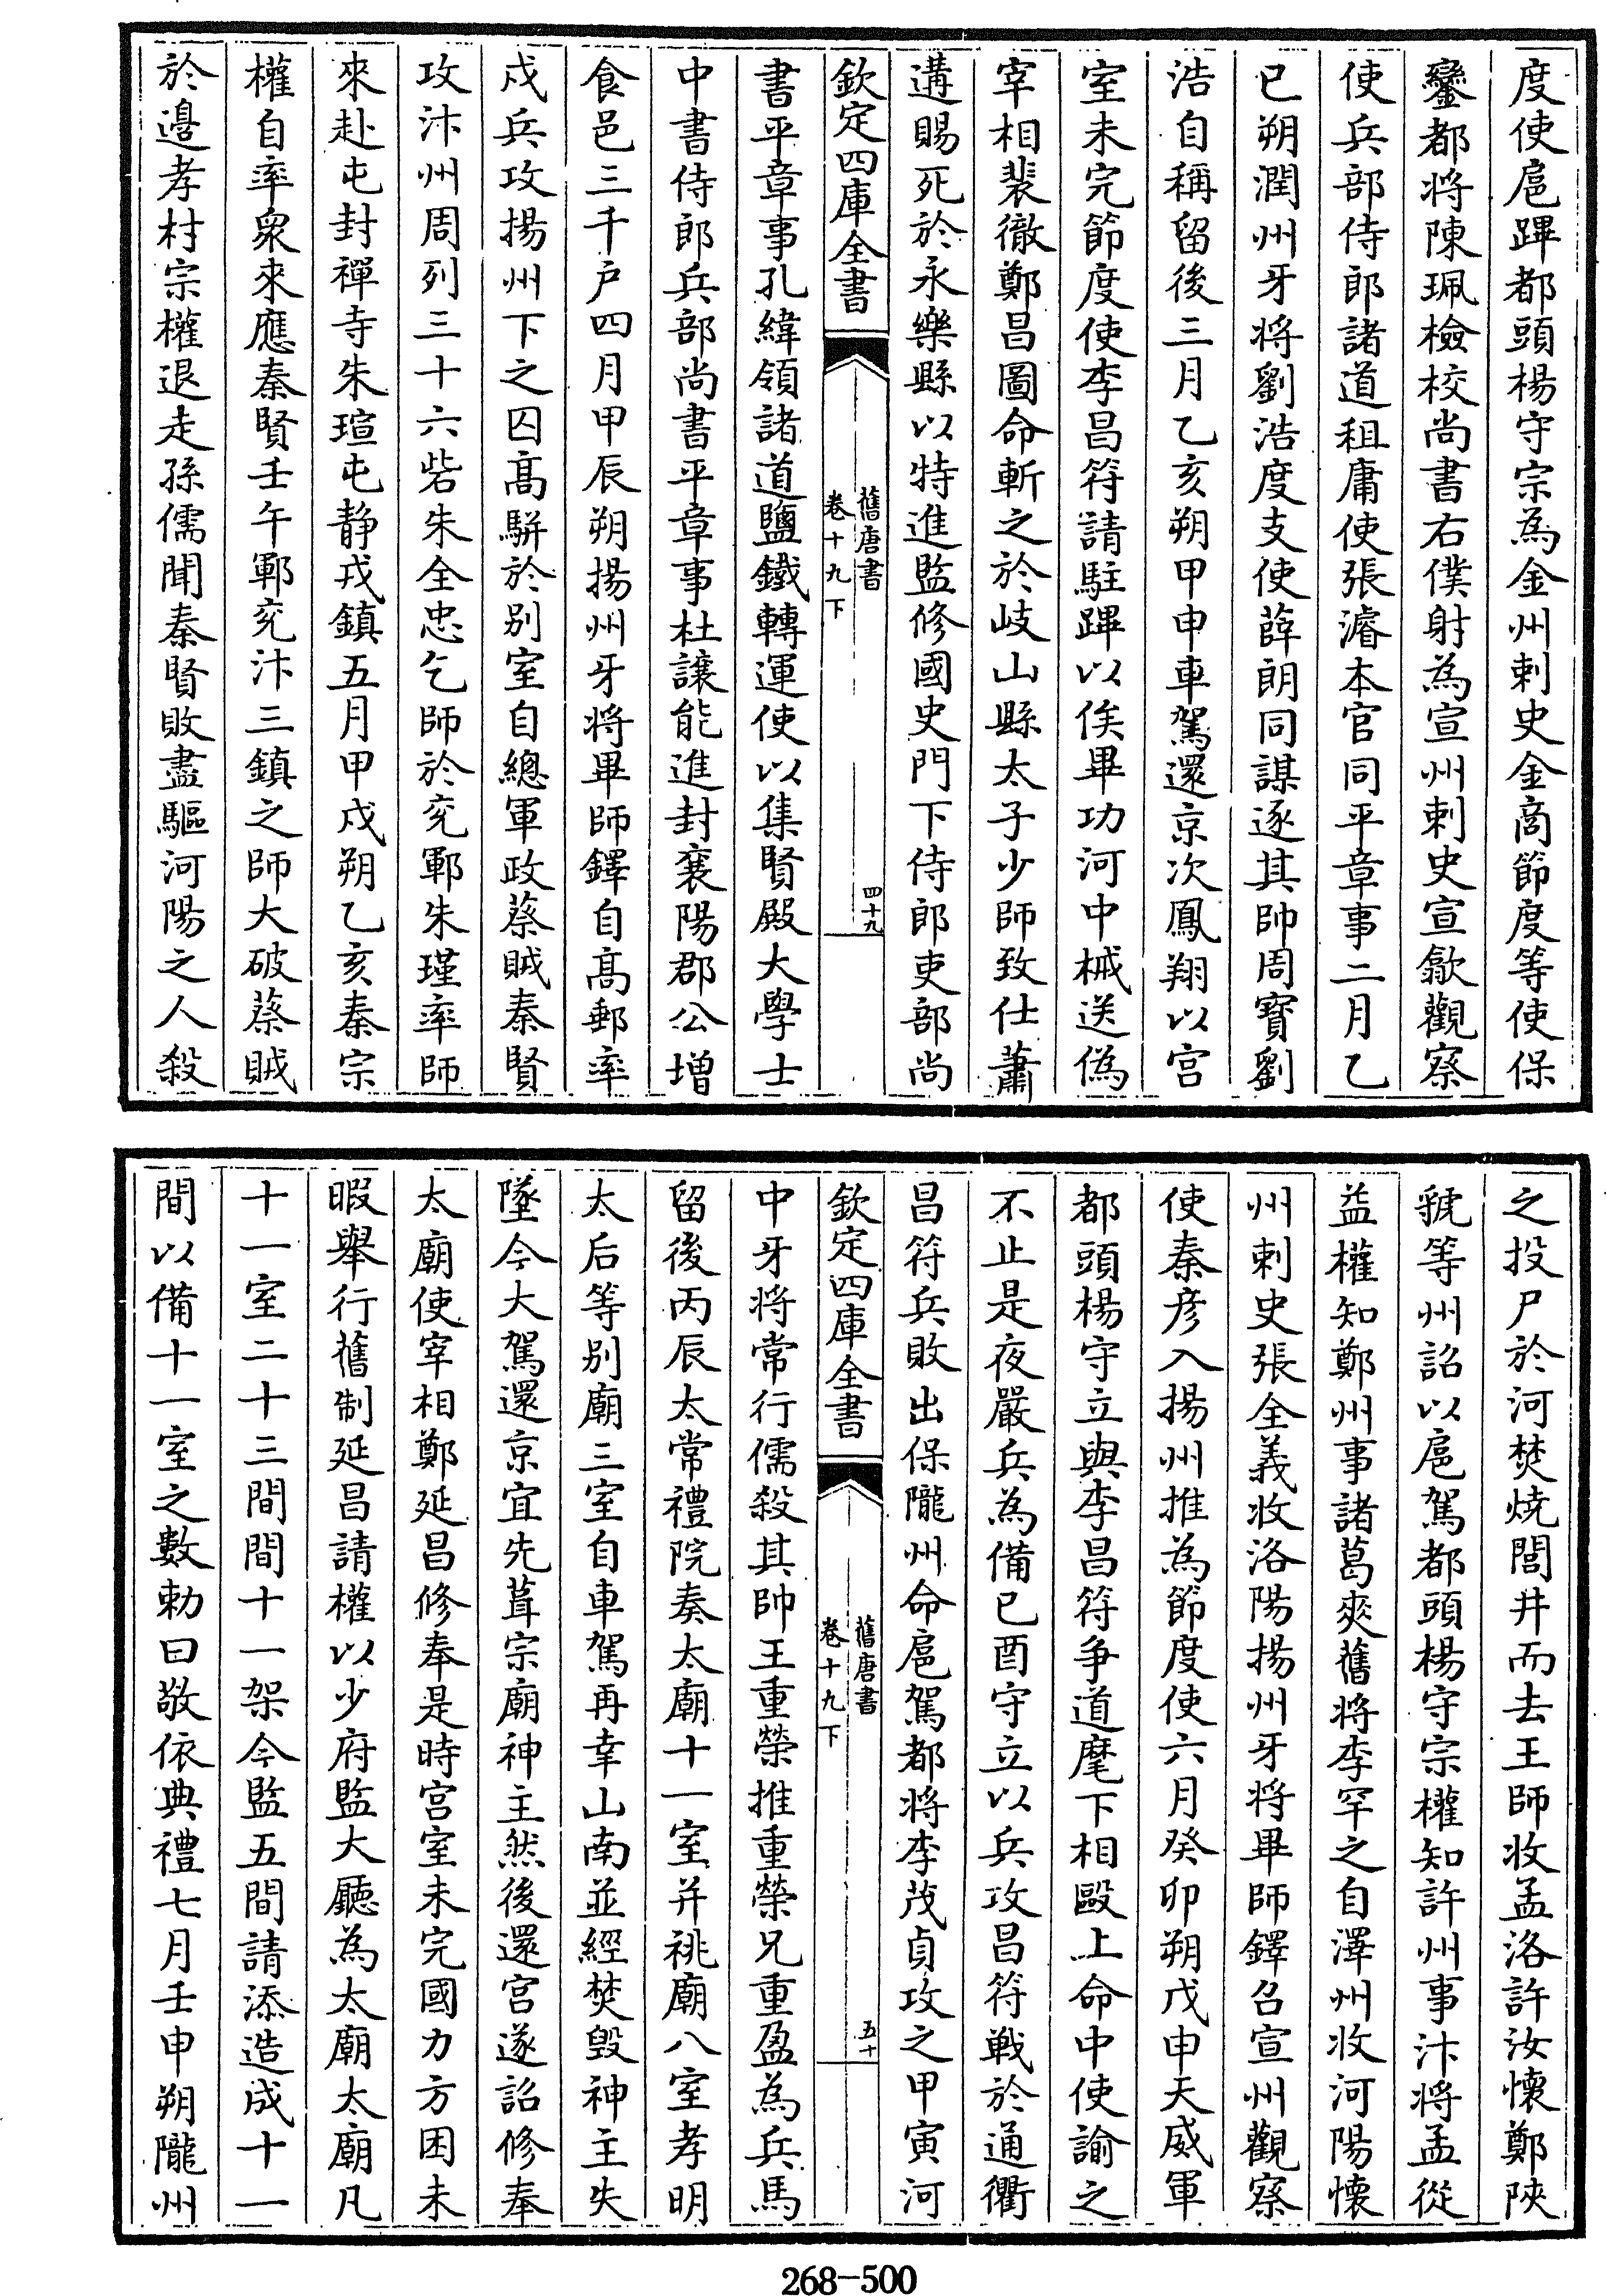 度使扈蹕都頭楊守宗為金州刺史金商節度等使保
鑾都將陳珮檢校尚書右僕射為宣州刺史宣歙觀察
使兵部侍郎諸道租庸使張濬本官同平章事二月乙
巳朔潤州牙將劉浩度支使薛朗同謀逐其帥周寳劉
浩自稱留後三月乙亥朔甲申車駕還京次鳳翔以宫
室未完節度使李昌符請駐蹕以俟畢功河中械送偽
宰相裴徹鄭昌圖命斬之於岐山縣太子少師致仕蕭
遘賜死於永樂縣以特進監修國史門下侍郎吏部尚
欽定四庫全書
舊唐書
卷十九下
四十九
書平章事孔緯領諸道鹽鐵轉運使以集賢殿大學士
中書侍郎兵部尚書平章事杜讓能進封襄陽郡公增
食邑三千户四月甲辰朔揚州牙將畢師鐸自高郵率
戍兵攻揚州下之囚高駢於别室自總軍政蔡賊秦賢
攻汴州周列三十六砦朱全忠乞師於兖鄆朱瑾率師
來赴屯封禪寺朱瑄屯静戎鎮五月甲戍朔乙亥秦宗
權自率衆來應秦賢壬午鄆兖汴三鎮之師大破蔡賊
於邉孝村宗權退走孫儒聞秦賢敗盡驅河陽之人殺
之投尸於河焚燒閭井而去王師收孟洛許汝懐鄭陜
虢等州詔以扈駕都頭楊守宗權知許州事汴將孟從
益權知鄭州事諸葛爽舊將李罕之自澤州收河陽懐
州刺史張全義收洛陽揚州牙將畢師鐸召宣州觀察
使秦彦入揚州推為節度使六月癸卯朔戊申天威軍
都頭楊守立與李昌符争道麾下相毆上命中使諭之
不止是夜嚴兵為備已酉守立以兵攻昌符戰於通衢
昌符兵敗出保隴州命扈駕都將李茂貞攻之甲寅河
欽定四庫全書
舊唐書
卷十九下
五十
中牙將常行儒殺其帥王重榮推重榮兄重盈為兵馬
留後丙辰太常禮院奏太廟十一室并祧廟八室孝明
太后等别廟三室自車駕再幸山南並經焚毁神主失
墜今大駕還京宜先葺宗廟神主然後還宫遂詔修奉
太廟使宰相鄭延昌修奉是時宫室未完國力方困未
暇舉行舊制延昌請權以少府監大廳為太廟太廟凡
十一室二十三間間十一架今監五間請添造成十一
間以備十一室之數勅曰敬依典禮七月壬申朔隴州
268-500